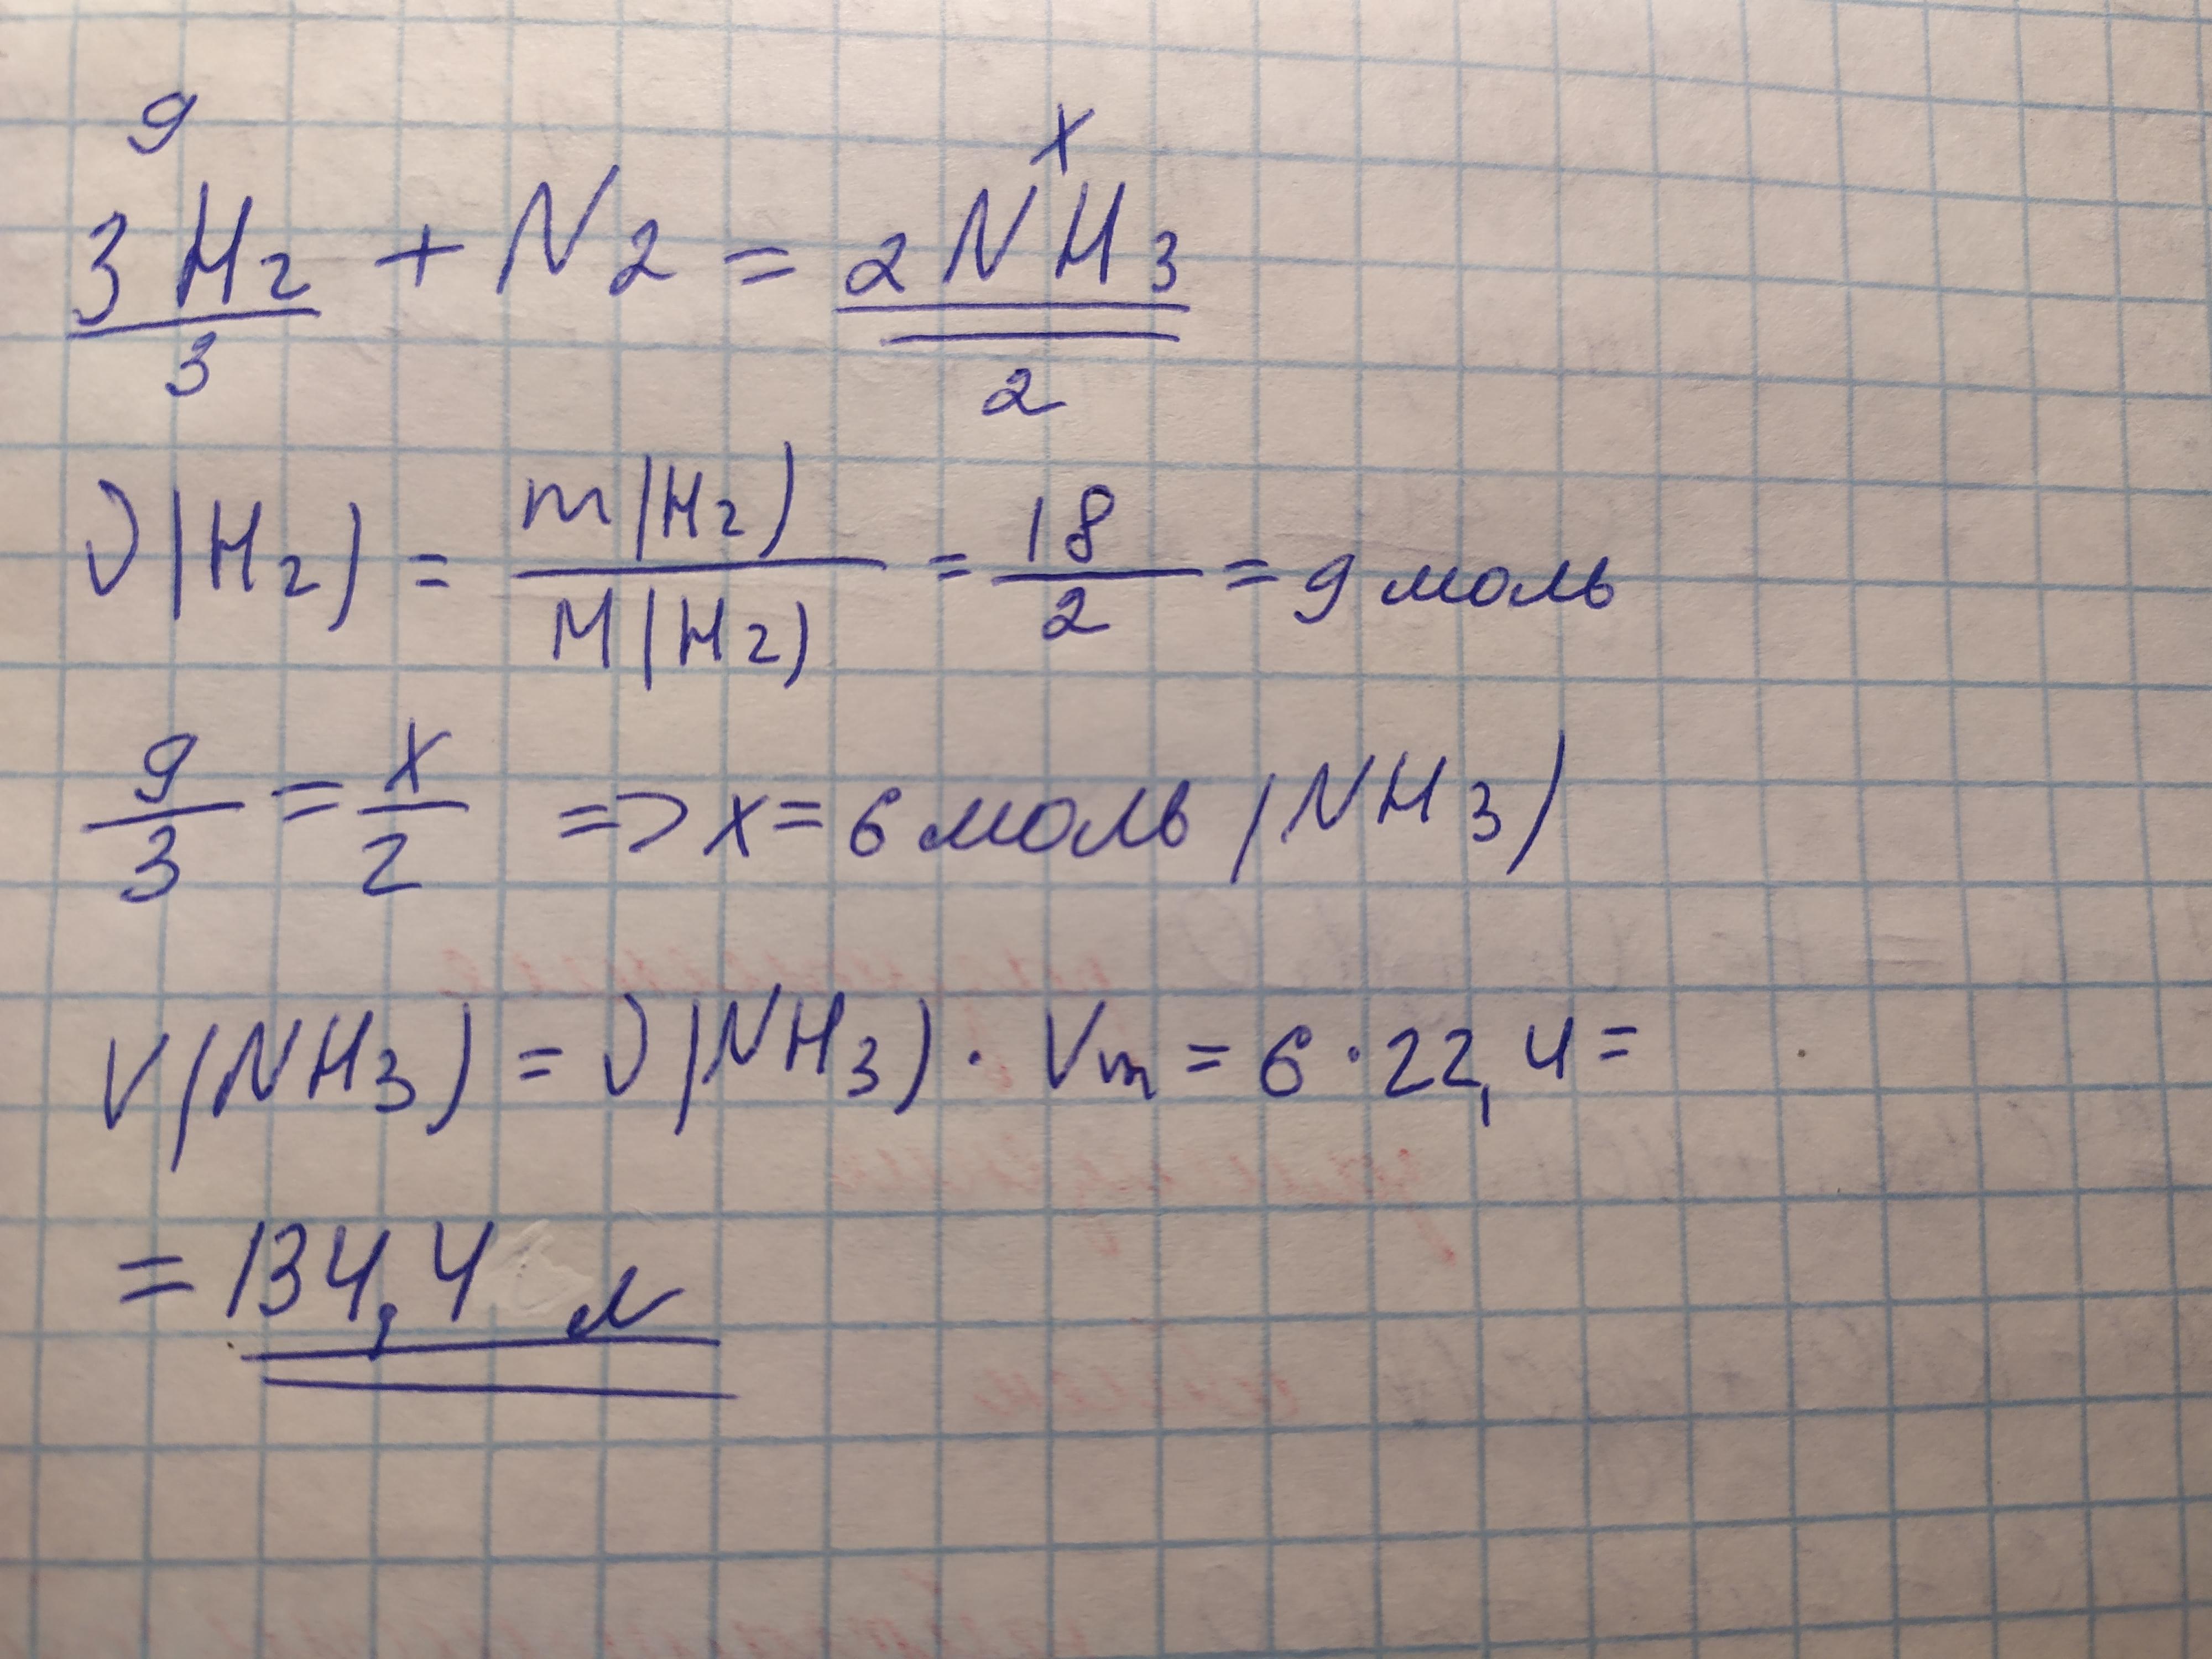 9 x
3H2 + N2 = 2NH3
3 2
ν(H2) = m(H2)/M(H2) = 18/2 = 9 моль
9/3 = x/2 => x = 6 моль (NH3)
V(NH3) = ν(NH3) · Vm = 6 · 22,4 =
= 134,4 л